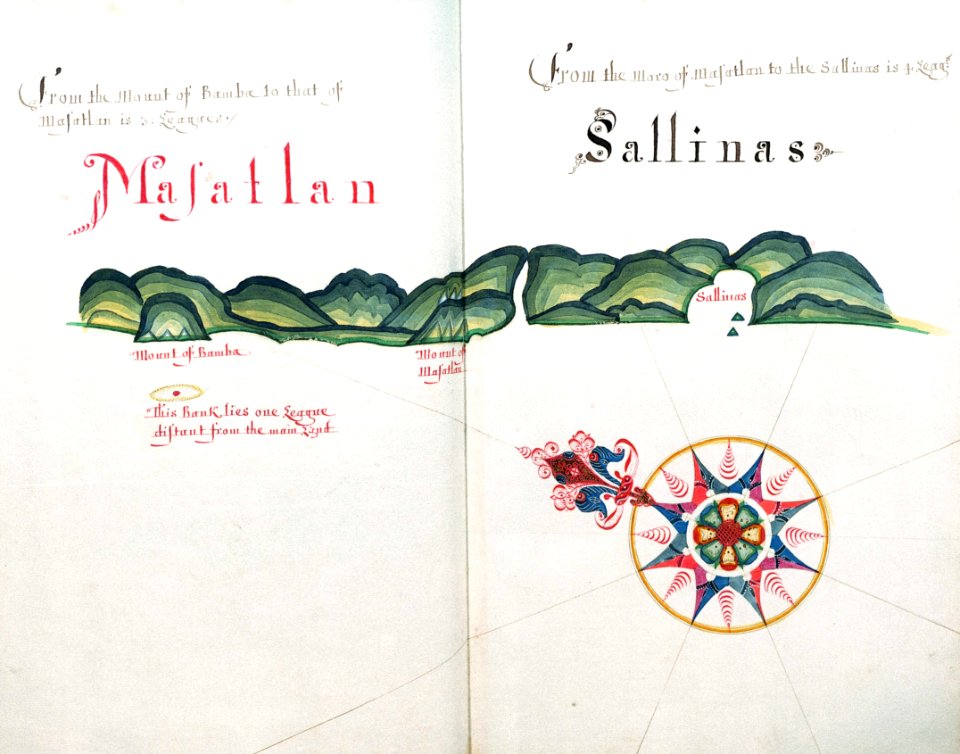 From the Mount of Bamba to that of
Maſatlan is 3. Leagues.
Maſatlan
From the Moro of Maſatlan to the Sallinas is 4. Leag.ˢ
Sallinas
Sallinas
Mount of Bamba
Mount of
Maſatlan
This Bank lies one League
diſtant from the main Land